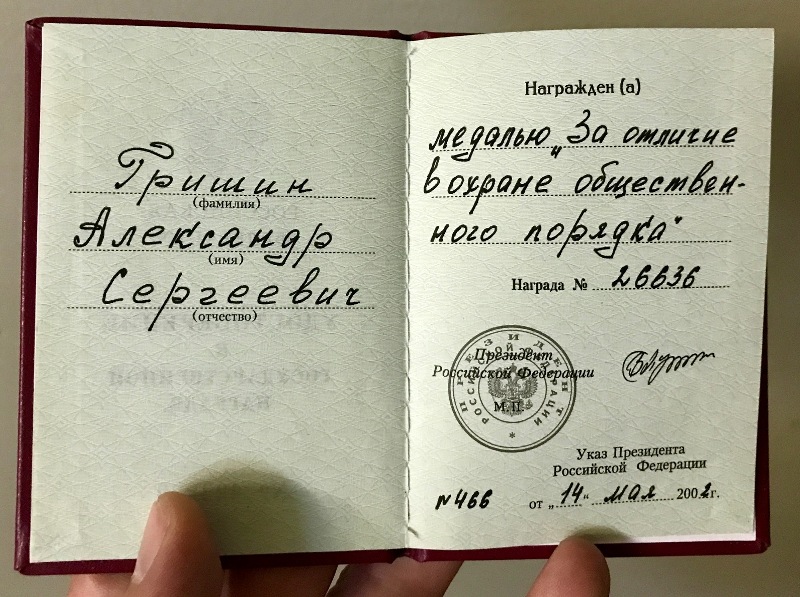 Гришин
(фамилия)
Александр
(имя)
Сергеевич
(отчество)
Награжден (а)
медалью „За отличие
в охране обществен-
ного порядка"
Награда № 26636
Президент
Российской Федерации
М.П.
ПРЕЗИДЕНТ
РОССИЙСКОЙ ФЕДЕРАЦИИ
Указ Президента
Российской Федерации
№466 от „14" мая 2002г.